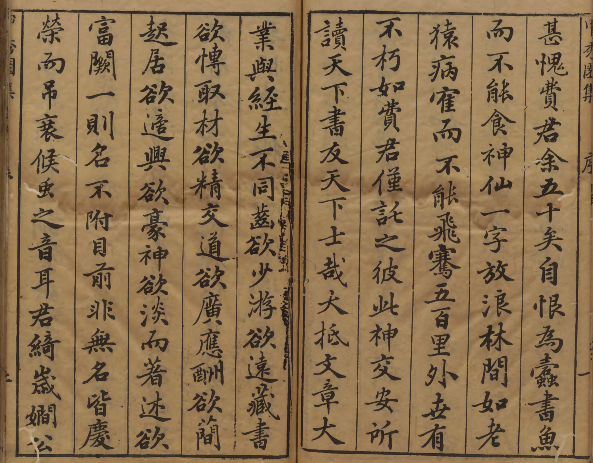 甚愧費君余五十矣自恨為蠧書魚
而不能食神仙一字放浪林間如老
猿病寉而不能飛騫五百里外每有
不朽如費君僅託之彼此神交安所
讀天下書友天下士哉大抵文章大
業與經生不同齒欲少游欲遠藏書
欲慱取材欲精交道欲廣應酬欲簡
起居欲適興欲豪神欲淡而著述欲
富闕一則名不附目前非無名皆慶
榮而吊衰候虫之音耳君綺歲嫺公